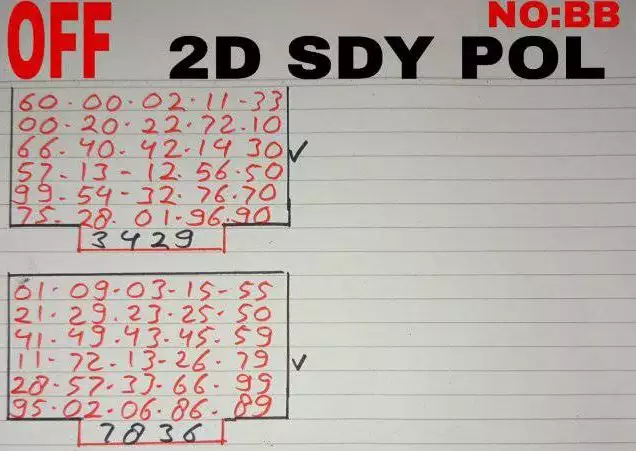 NO:BB
OFF 2D SDY POL
60·00·02·11-33
00-20·22·72·10
66·40·42·14 30
57-13-12·56·50
99-54-32·76·70
75-28·01·96·90
3429
01·09·03-15-55
21·29·23·25·50
41·49·43·45·59
11-72·13-26·79
28·57·33·66·99
95·02·06·86·89
7836